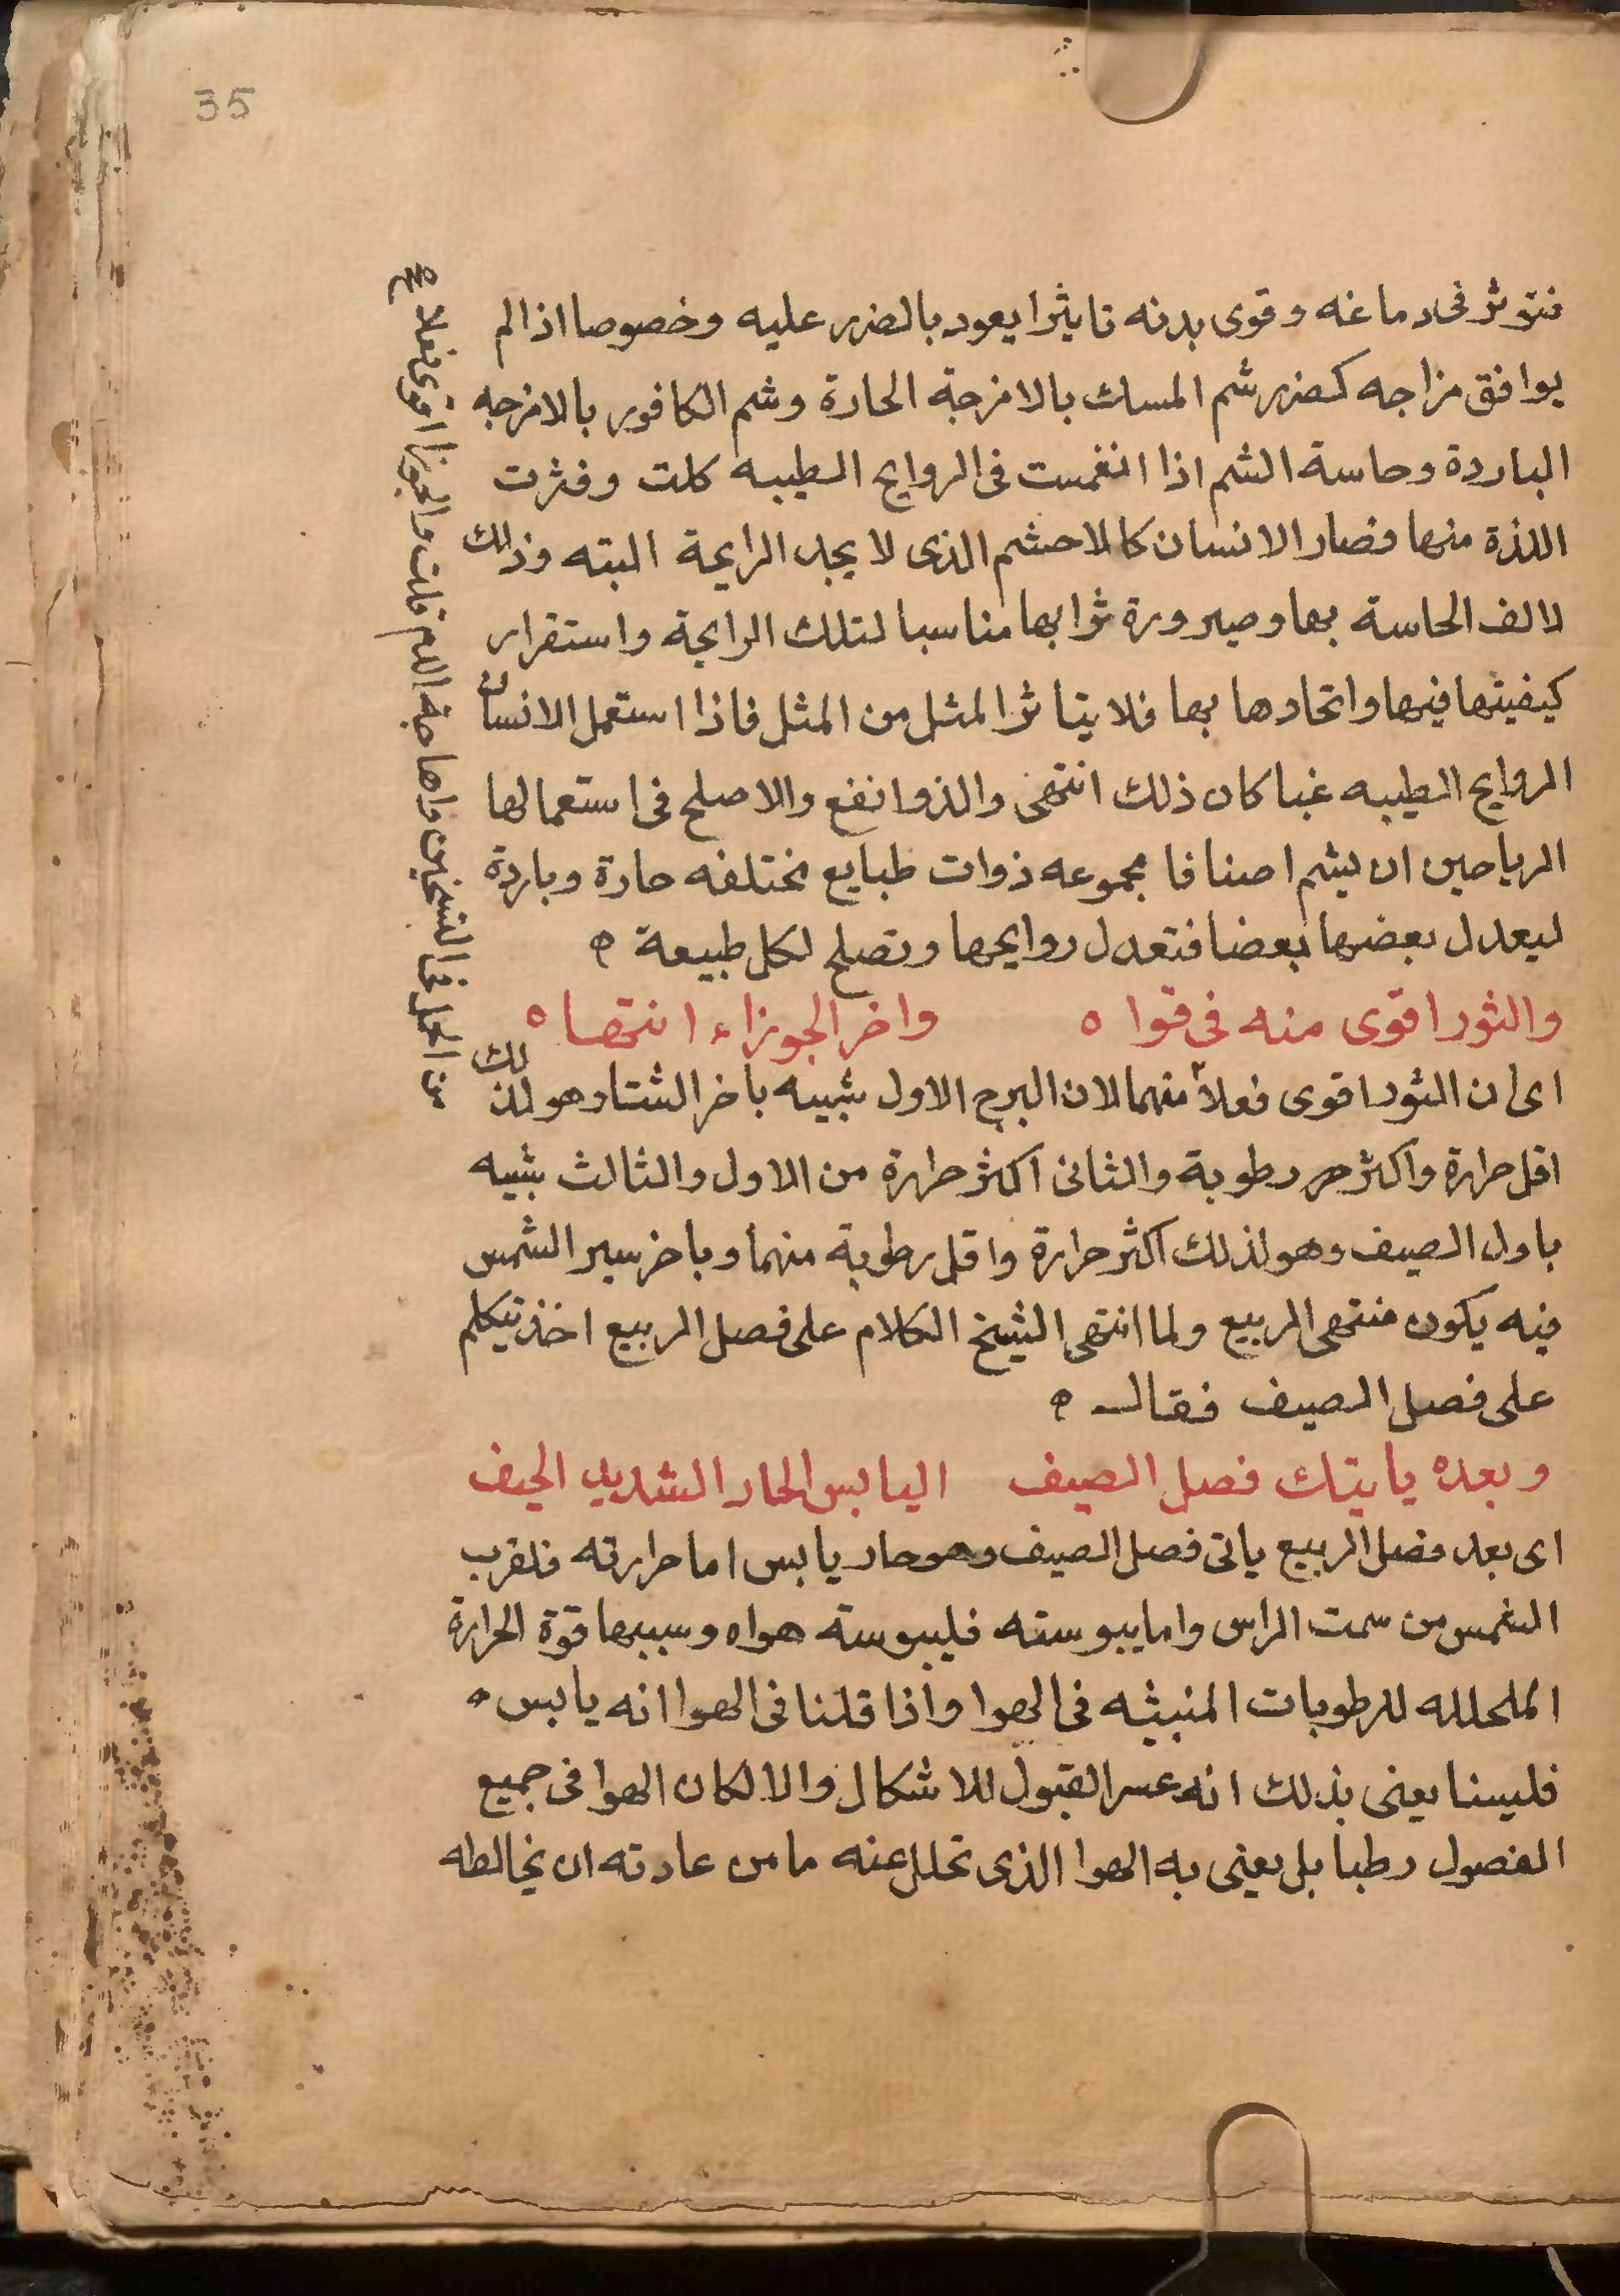 35
فتوثر فى دماغه وقوى بدنه تاثيرا يعود بالضرر عليه وخصوصا اذا لم
يوافق مزاجه كضرر شم المسك بالامزجة الحارة وشم الكافور بالامزجه
الباردة وحاسة الشم اذا انغمست فى الروايح الطيبه كلت وفترت
اللذة منها فصار الانسان كالاخشم الذى لا يجد الرايحة البته وذلك
لالف الحاسة بها وصيرورة ثوابها مناسبا لتلك الرايحة واستقرار
كيفيتها فيها واتحادها بها فلا يتاثر المثل من المثل فاذا استعمل الانسان
الروايح الطيبه غبا كان ذلك انتهى والذ وانفع والاصلح فى استعمالها
الرياحين ان يشم اصنافا مجموعه ذوات طبايع مختلفه حارة وباردة
ليعدل بعضها بعضا فتعدل روايحها وتصلح لكل طبيعة ه
والثور اقوى منه فى قوا ه واخر الجوزاء انتها ه
اى ان الثور اقوى فعلا منهما لان البرج الاول شبيه باخر الشتا وهو لذلك
اقل حرارة واكثر رطوبة والثانى اكثر حرارة من الاول والثالث شبيه
باول الصيف وهو لذلك اكثر حرارة واقل رطوبة منهما وباخر سير الشمس
فيه يكون منتهى الربيع ولما انتهى الشيخ الكلام على فصل الربيع اخذ يتكلم
على فصل الصيف فقال ه
وبعده ياتيك فصل الصيف اليابس الحار الشديد الحيف
اى بعد فصل الربيع ياتى فصل الصيف وهو حار يابس اما حرارته فلقرب
الشمس من سمت الراس واما يبوسته فليبوسة هواه وسببها قوة الحرارة
المحلله للرطوبات المنبثه فى الهوا واذا قلنا فى الهوا انه يابس ه
فليسنا يعنى بذلك انه عسر القبول للاشكال والا لكان الهوا فى جميع
الفصول رطبا بل يعنى به الهوا الذى تحلل عنه ما من عادته ان يخالطه
من الحمل فى التسخين واهاجة الدم قلت والجوزا اقوى فعلا